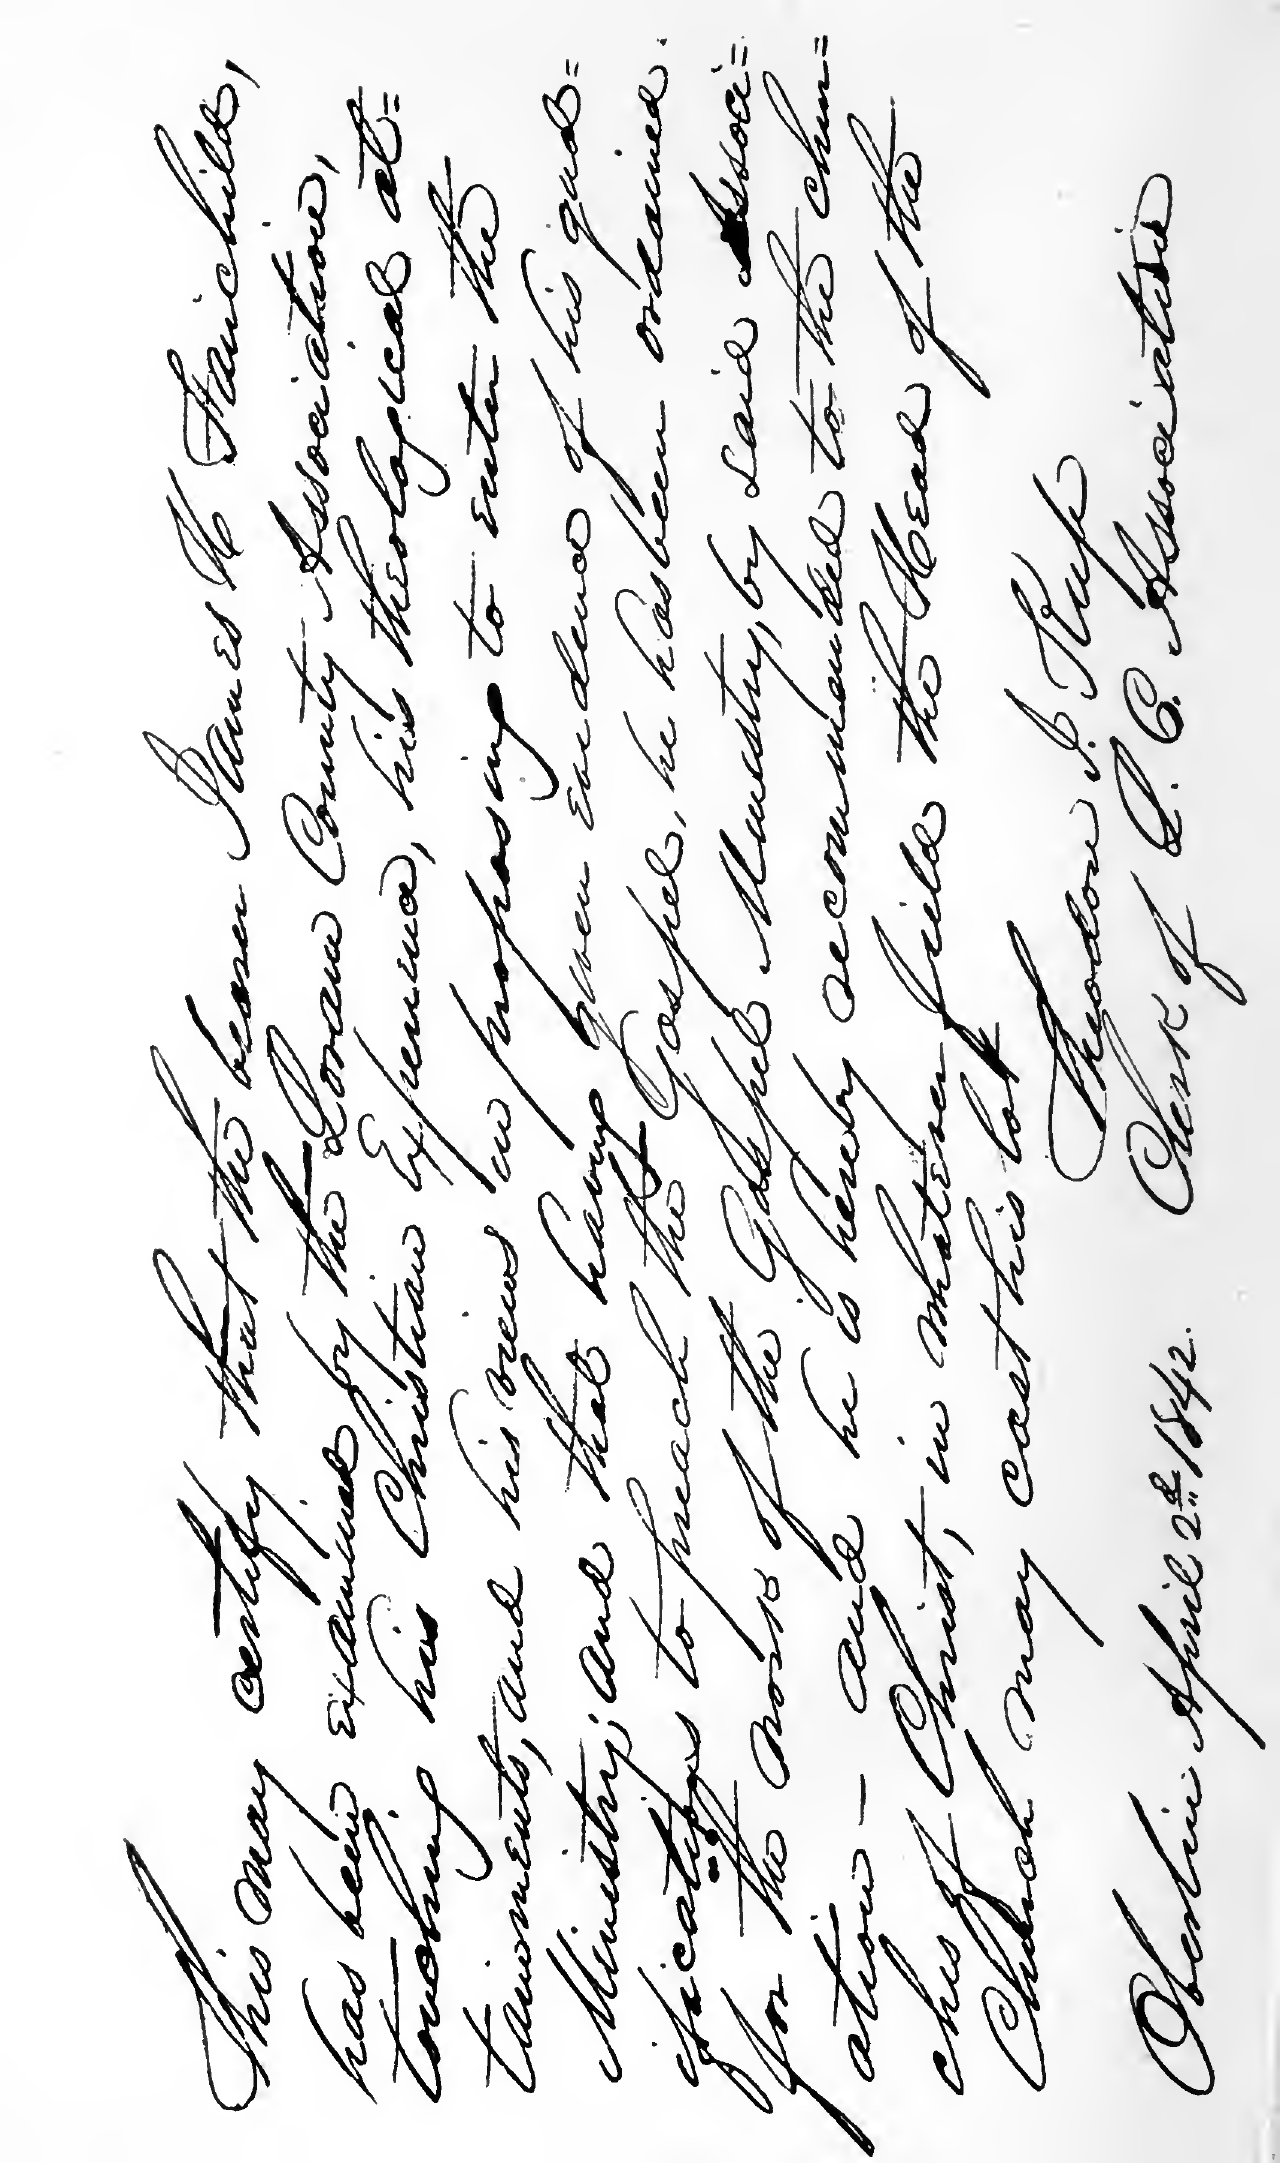 This may certify that the bearer James H Fairchild,
has been examined by the Lorain County Association,
touching his Christian Experience, his theological at=
tainments, and his views in proposing to enter the
Ministry; and that having given evidence of his qual=
ifications to preach the Gospel, he has been ordained
for the work of the Gospel Ministry, by said Associ=
ation — and he is hereby recommended to the chur=
ches of Christ, in whatever field the Head of the
Church may cast his lot
Theodore J. Keep
Clerk of L. C. Association
Oberlin April 2d 1842.